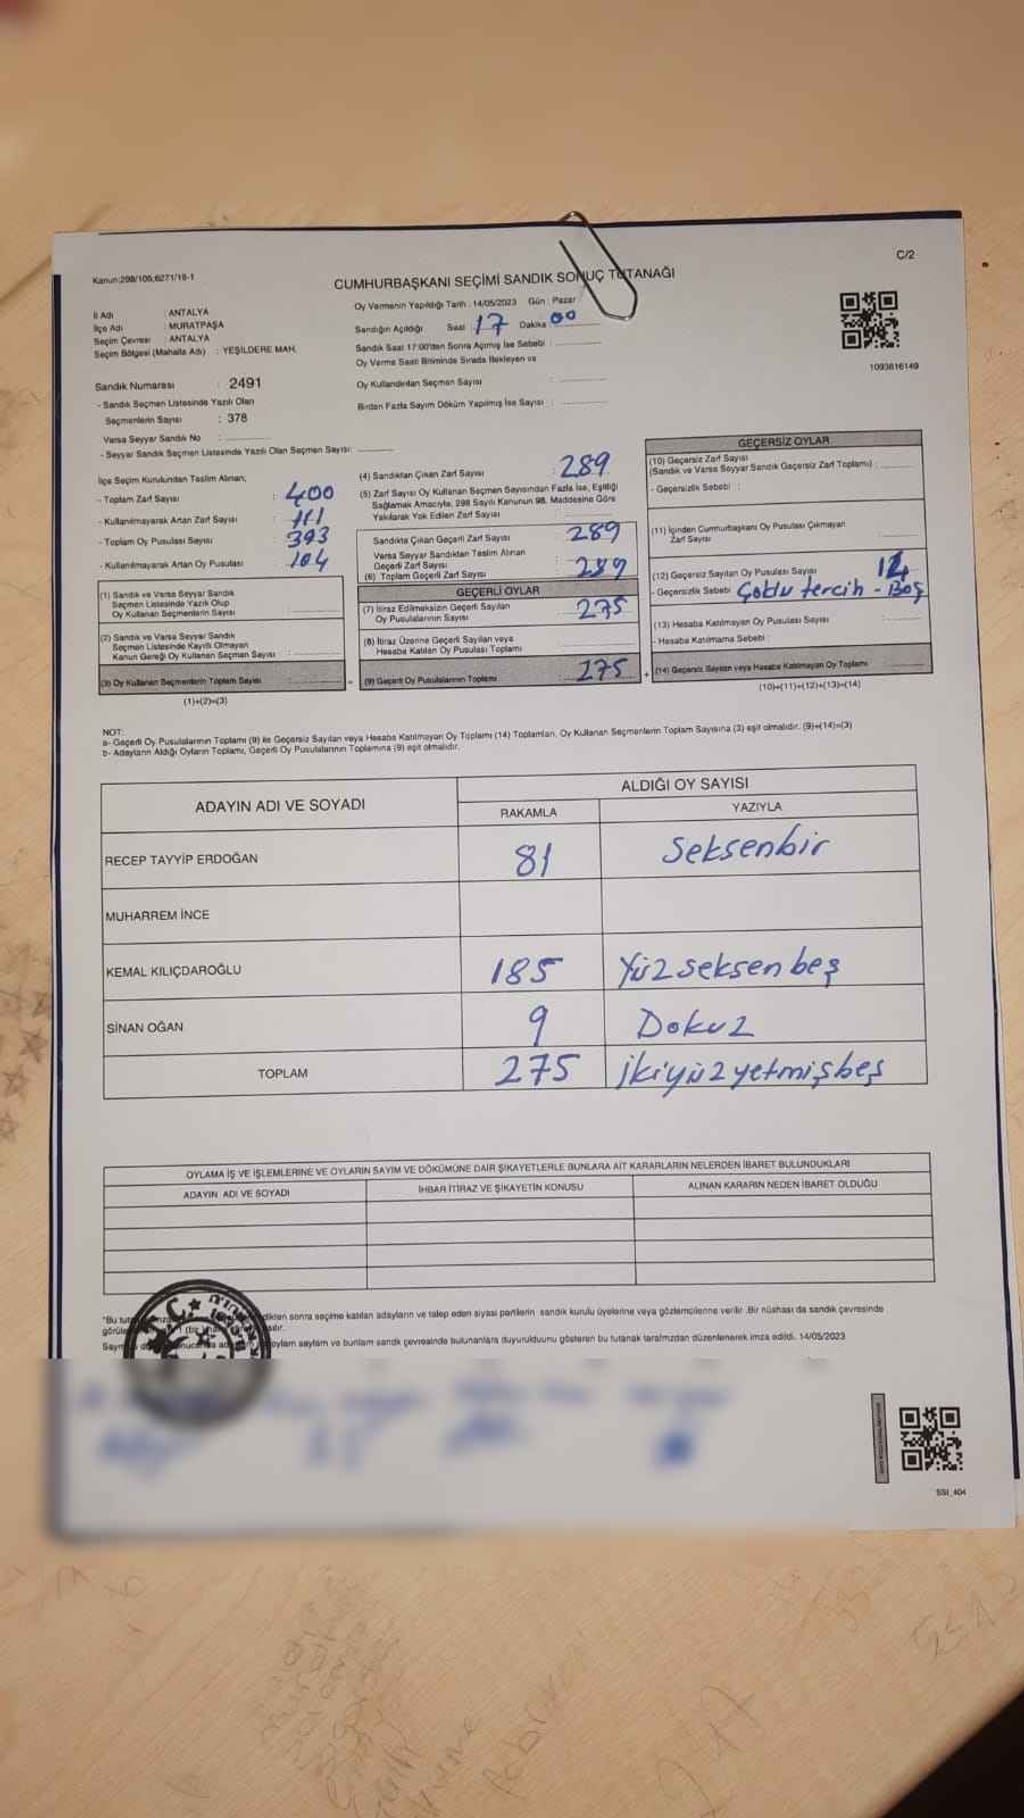 C/2
Kanun:298/106;6271/18-1
CUMHURBAŞKANI SEÇİMİ SANDIK SONUÇ TUTANAĞI
İl Adı : ANTALYA
İlçe Adı : MURATPAŞA
Seçim Çevresi : ANTALYA
Seçim Bölgesi (Mahalle Adı) : YEŞİLDERE MAH.
Sandık Numarası : 2491
- Sandık Seçmen Listesinde Yazılı Olan
Seçmenlerin Sayısı : 378
Varsa Seyyar Sandık No :
- Seyyar Sandık Seçmen Listesinde Yazılı Olan Seçmen Sayısı:
Oy Vermenin Yapıldığı Tarih : 14/05/2023 Gün : Pazar
Sandığın Açıldığı Saat : 17 Dakika 00
Sandık Saat 17:00'den Sonra Açılmış İse Sebebi :
Oy Verme Saati Bitiminde Sırada Bekleyen ve
Oy Kullandırılan Seçmen Sayısı :
Birden Fazla Sayım Döküm Yapılmış İse Sayısı :
1093616149
İlçe Seçim Kurulundan Teslim Alınan;
- Toplam Zarf Sayısı : 400
- Kullanılmayarak Artan Zarf Sayısı : 111
- Toplam Oy Pusulası Sayısı : 393
- Kullanılmayarak Artan Oy Pusulası : 104
(1) Sandık ve Varsa Seyyar Sandık
Seçmen Listesinde Yazılı Olup
Oy Kullanan Seçmenlerin Sayısı :
(2) Sandık ve Varsa Seyyar Sandık
Seçmen Listesinde Kayıtlı Olmayan
Kanun Gereği Oy Kullanan Seçmen Sayısı :
(3) Oy Kullanan Seçmenlerin Toplam Sayısı :
(1)+(2)=(3)
(4) Sandıktan Çıkan Zarf Sayısı : 289
(5) Zarf Sayısı Oy Kullanan Seçmen Sayısından Fazla İse, Eşitliği
Sağlamak Amacıyla, 298 Sayılı Kanunun 98. Maddesine Göre
Yakılarak Yok Edilen Zarf Sayısı :
Sandıkta Çıkan Geçerli Zarf Sayısı : 289
Varsa Seyyar Sandıktan Teslim Alınan
Geçerli Zarf Sayısı :
(6) Toplam Geçerli Zarf Sayısı : 289
GEÇERLİ OYLAR
(7) İtiraz Edilmeksizin Geçerli Sayılan
Oy Pusulalarının Sayısı : 275
(8) İtiraz Üzerine Geçerli Sayılan veya
Hesaba Katılan Oy Pusulası Toplamı :
= (9) Geçerli Oy Pusulalarının Toplamı : 275 +
GEÇERSİZ OYLAR
(10) Geçersiz Zarf Sayısı
(Sandık ve Varsa Seyyar Sandık Geçersiz Zarf Toplamı) :
- Geçersizlik Sebebi :
(11) İçinden Cumhurbaşkanı Oy Pusulası Çıkmayan
Zarf Sayısı :
(12) Geçersiz Sayılan Oy Pusulası Sayısı 14
- Geçersizlik Sebebi Çoklu tercih - Boş
(13) Hesaba Katılmayan Oy Pusulası Sayısı :
- Hesaba Katılmama Sebebi :
(14) Geçersiz Sayılan veya Hesaba Katılmayan Oy Toplamı :
(10)+(11)+(12)+(13)=(14)
NOT:
a- Geçerli Oy Pusulalarının Toplamı (9) ile Geçersiz Sayılan veya Hesaba Katılmayan Oy Toplamı (14) Toplamları, Oy Kullanan Seçmenlerin Toplam Sayısına (3) eşit olmalıdır. (9)+(14)=(3)
b- Adayların Aldığı Oyların Toplamı, Geçerli Oy Pusulalarının Toplamına (9) eşit olmalıdır.
ADAYIN ADI VE SOYADI
ALDIĞI OY SAYISI
RAKAMLA YAZIYLA
RECEP TAYYİP ERDOĞAN 81 Seksenbir
MUHARREM İNCE
KEMAL KILIÇDAROĞLU 185 Yüzseksenbeş
SİNAN OĞAN 9 Dokuz
TOPLAM 275 İkiyüzyetmişbeş
OYLAMA İŞ VE İŞLEMLERİNE VE OYLARIN SAYIM VE DÖKÜMÜNE DAİR ŞİKAYETLERLE BUNLARA AİT KARARLARIN NELERDEN İBARET BULUNDUKLARI
ADAYIN ADI VE SOYADI İHBAR İTİRAZ VE ŞİKAYETİN KONUSU ALINAN KARARIN NEDEN İBARET OLDUĞU
*Bu sonra seçime katılan adayların ve talep eden siyasi partilerin sandık kurulu üyelerine veya gözlemcilerine verilir .Bir nüshası da sandık çevresinde
sandık çevresinde bulunanlara duyurulduunu gösteren bu tutanak tarafımızdan düzenlenerek imza edildi. 14/05/2023
SSI_404